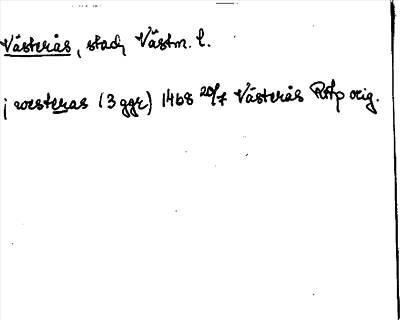 Västerås, stad, Västm. l.
j westeras (3 ggr) 1468 20/7 Västerås RAp orig.